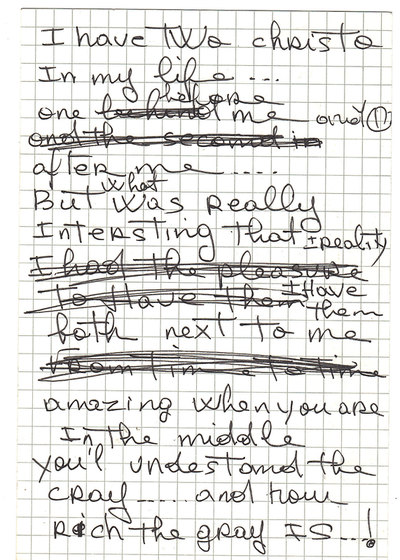 I have two christo
In my life ...
before
one behind me and ①
and the second in
after me ....
what
But was really
Intersting that I reality
I had the pleasure
I Have
to Have them them
both next to me
from time to time
amazing when you are
In the middle
you'l undestand the
cray ..... and how
rich the gray IS ...!